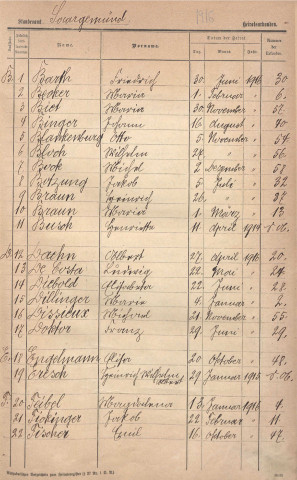 Standesamt Saargemünd. 1916 Heiratsurkunden.
Name. Vorname.
Tag. Monat. Jahr.
B. 1 Barth Friedrich 30. Juni 1916 30.
2 Becker Maria 1. Februar " 6.
3 Biet Maria 30. November " 57.
4 Binger Johann 16 August " 40.
5 Blankenburg Otto 5 November " 54.
6 Bloch Wilhelm " " 56.
7 Bock 2 Dezember " 57.
8 Betzung Jakob 5 Juli " 32.
9 Braun Heinrich 26. " " 37.
10 Braun Maria 1. März " 13
11 Busch Henriette 11 April
D. 12 Daehn Albert 27 April 1916 20.
13 De Costa Ludwig 22 Mai " 24.
14 Diebold Elisabeth 22 Juni " 28.
15 Dillinger Marie 4 Januar " 2.
16 Dissieux Michael 21 November " 55.
17 Doktor Franz 29 Juni " 29.
E. 18 Engelmann 20 Oktober " 48.
19 Ersch Heinrich Wilhelm Albert 29 Januar 1915
F. 20 Feibel Magdalena 13 Januar 1916 4.
21 Fickinger Jakob 22 Februar " 11
22 Fischer Emil 16 Oktober " 47.